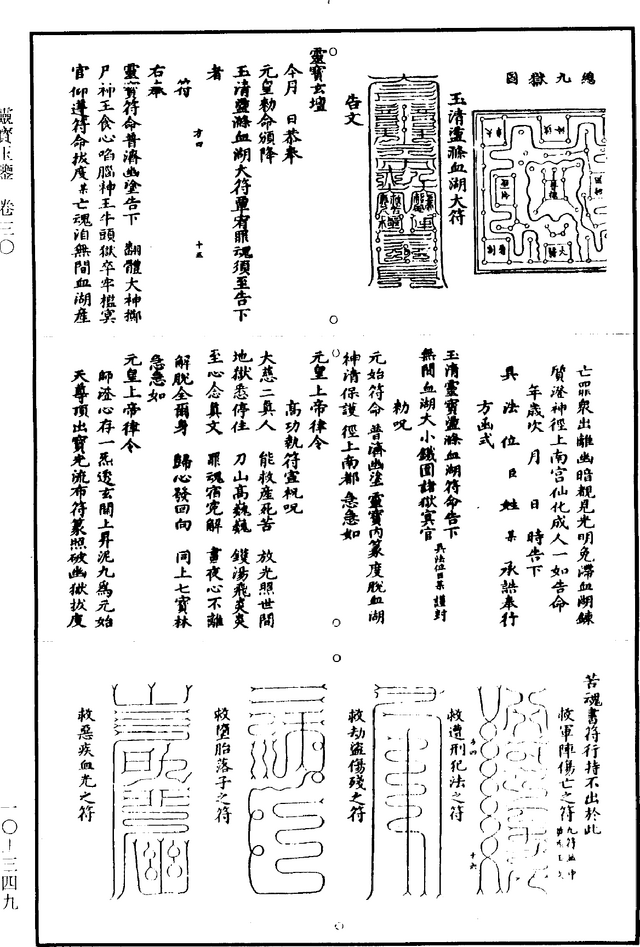 總九獄圖
玉清盪滌血湖大符
告文
靈寶玄壇
今月 日恭奉
元皇勅命頒降
玉清盪滌血湖大符蕈宥罪魂須至告下
者
符
右奉
靈寶符命普濟幽塗告下 翻體大神擲
尸神王食心啗腦神王牛頭獄卒牢檻冥
官仰遵符命拔度某亡魂洎無間血湖產
亡罪衆出離幽暗覩見光明免滯血湖鍊
質澄神徑上南宮仙化成人一如告命
年歲次 月 日 時告下
具法位臣姓某承誥奉行
方函式
玉清靈寶盪滌血湖符命告下
無間血湖大小鐵圍諸獄冥官 具法位臣某謹封
勅呪
元始符命 普濟幽塗 靈寶內篆 度脫血湖
神清保護 徑上南都 急急如
元皇上帝律令
高功執符宣祝呪
大慈二眞人 能救產死苦 放光照世間
地獄悉停住 刀山高巍巍 鑊湯飛炎炎
至心念眞文 罪魂宿冤解 晝夜心不離
解脫全爾身 歸心發回向 同上七寶林
急急如
元皇上帝律令
師澄心存一炁透玄關上昇泥九爲元始
天尊頂出寶光流布符篆照破幽獄拔度
苦魂書符行持不出於此
救軍陣傷亡之符
救遭刑犯法之符
救劫盜傷殘之符
救墮胎落子之符
救惡疾血光之符
靈寶玉鑒 卷三〇
一〇-三四九